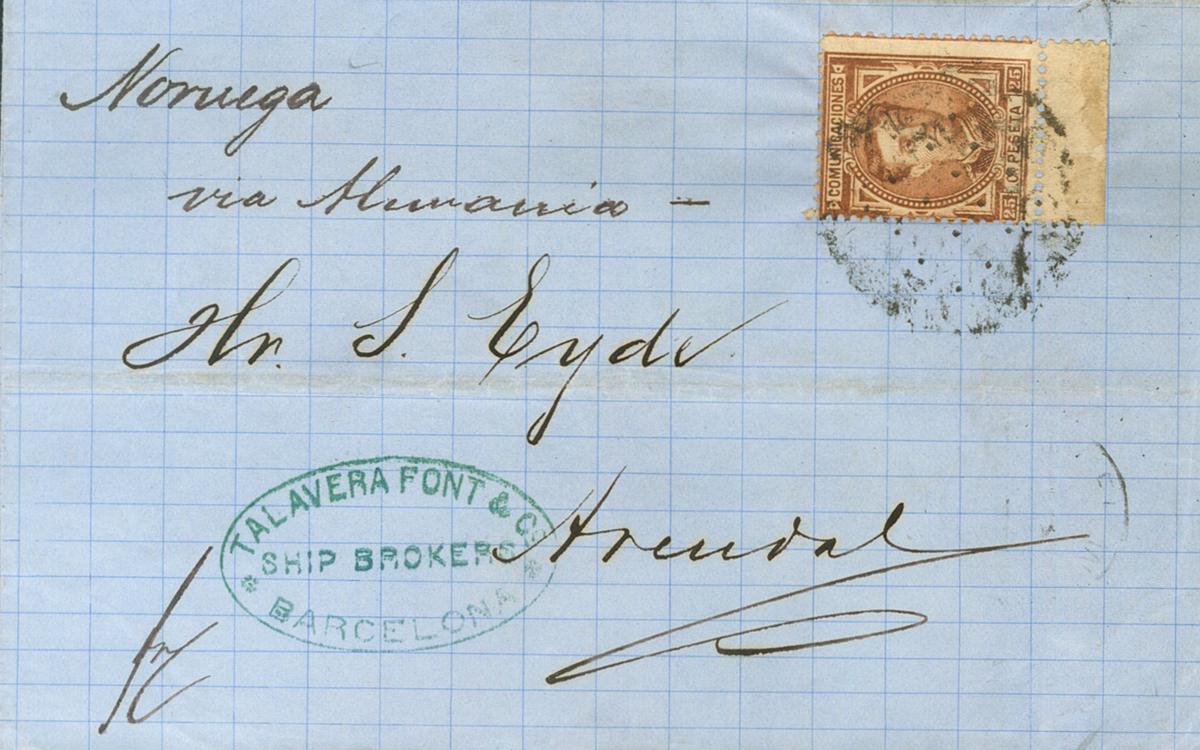 Noruega
via Alemania –
Hr. S. Eyde
Arendal
TALAVERA FONT & Co
SHIP BROKERS
BARCELONA
COMUNICACIONES
25 Cs PESETA 25